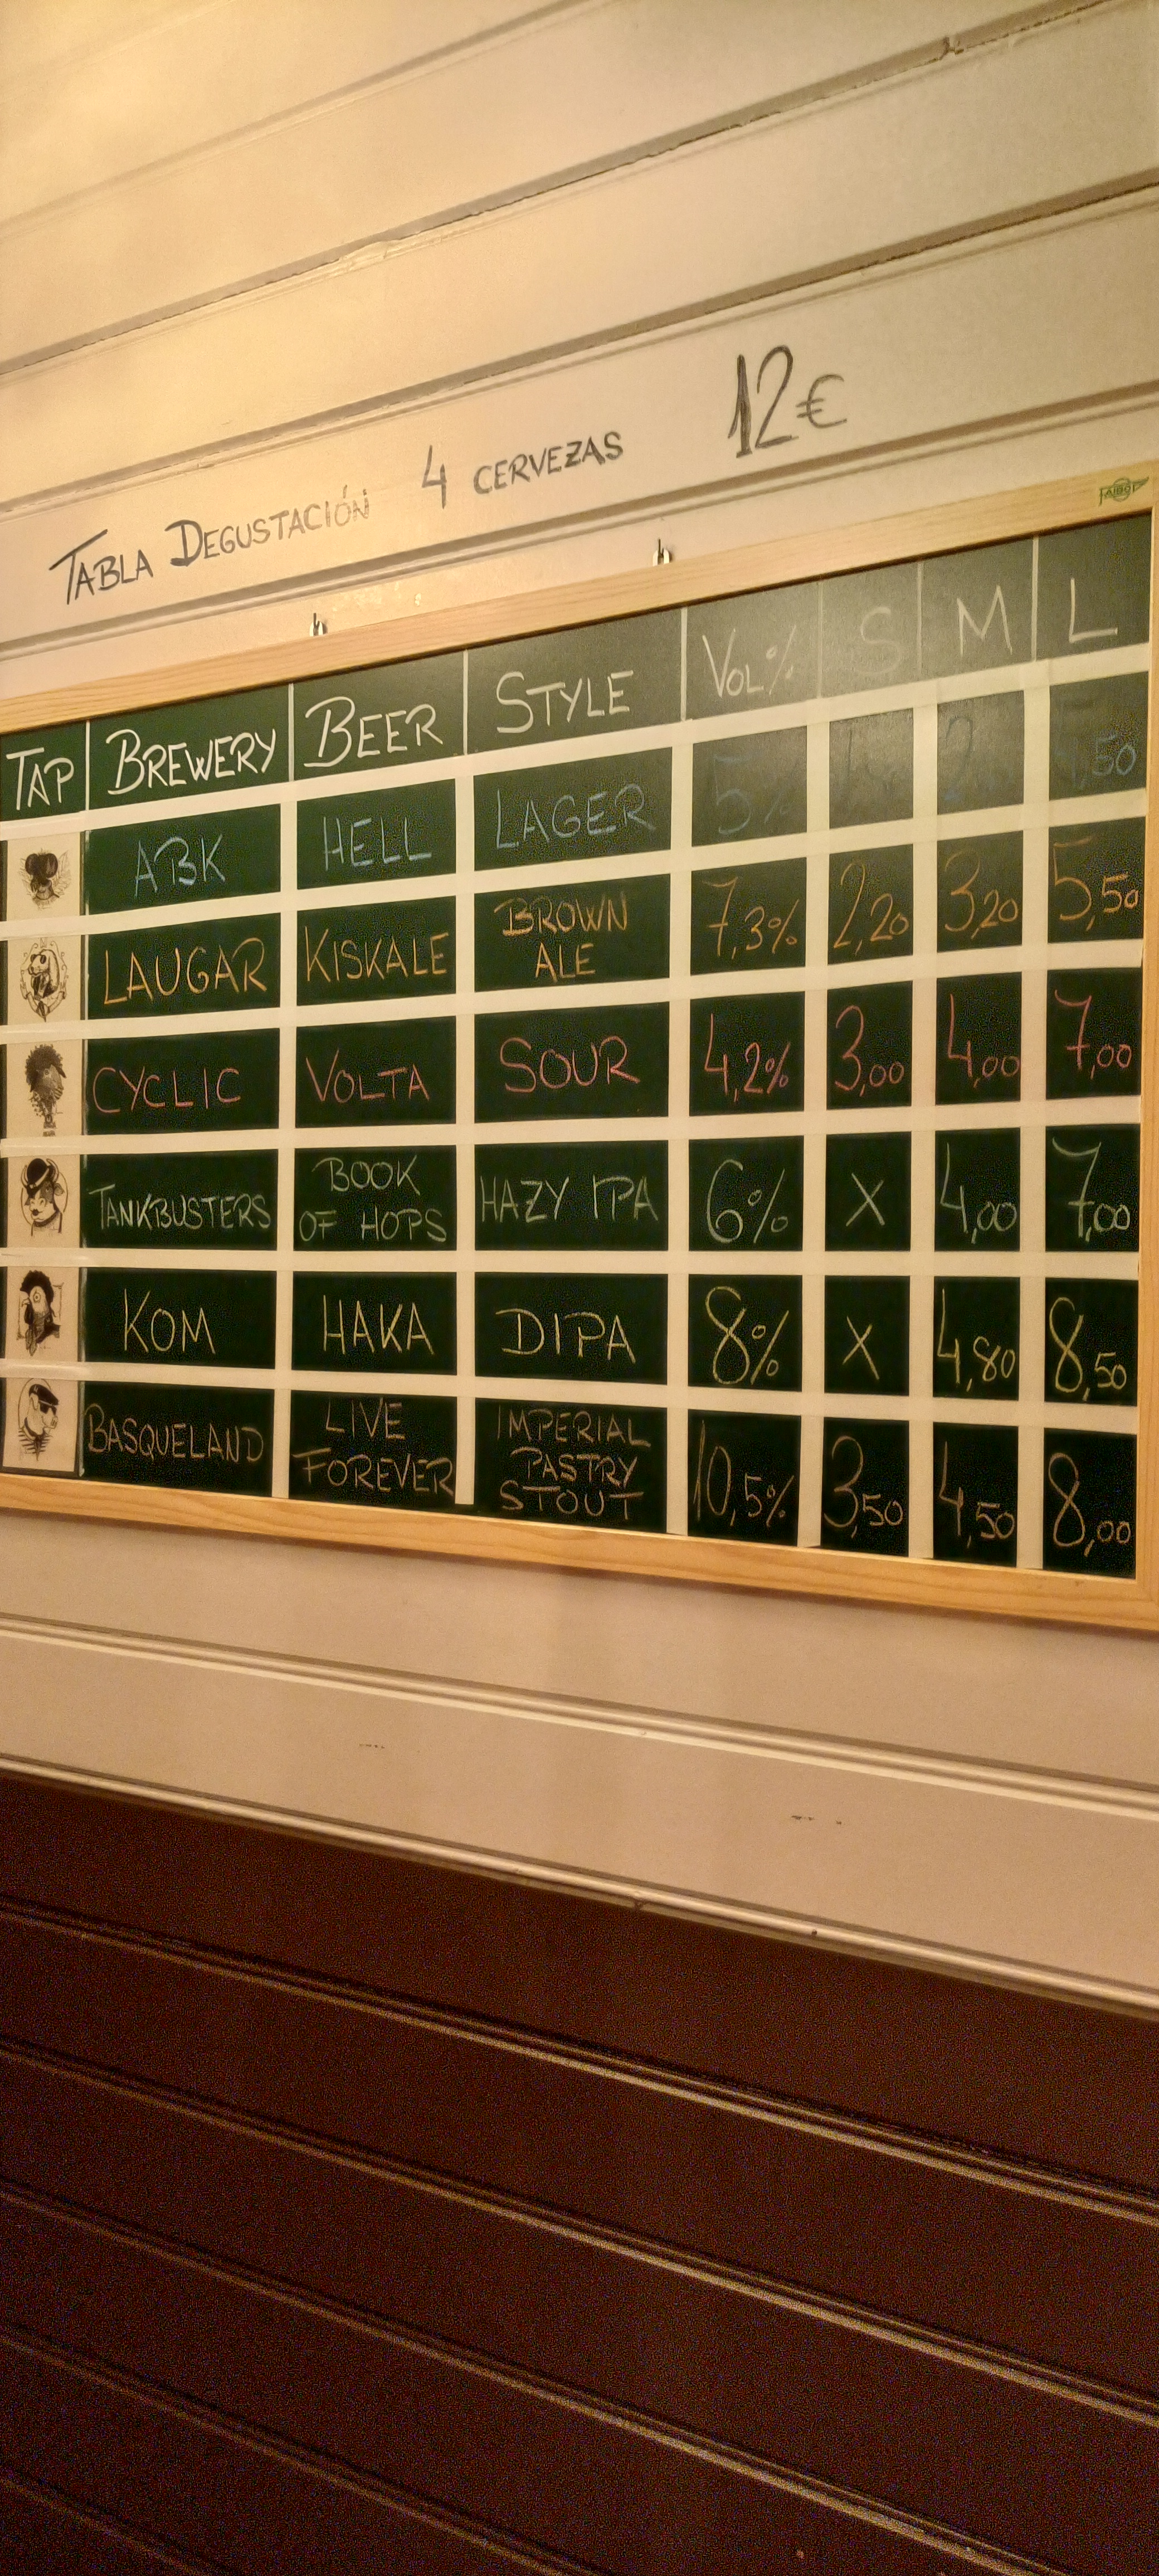 TABLA DEGUSTACIÓN 4 CERVEZAS 12€
TAP BREWERY BEER STYLE VOL% S M L
ABK HELL LAGER 5%
LAUGAR KISKALE BROWN ALE 7,3% 2,20 3,20 5,50
CYCLIC VOLTA SOUR 4,2% 3,00 4,00 7,00
TANKBUSTERS BOOK OF HOPS HAZY IPA 6% X 4,00 7,00
KOM HAKA DIPA 8% X 4,80 8,50
BASQUELAND LIVE FOREVER IMPERIAL PASTRY STOUT 10,5% 3,50 4,50 8,00